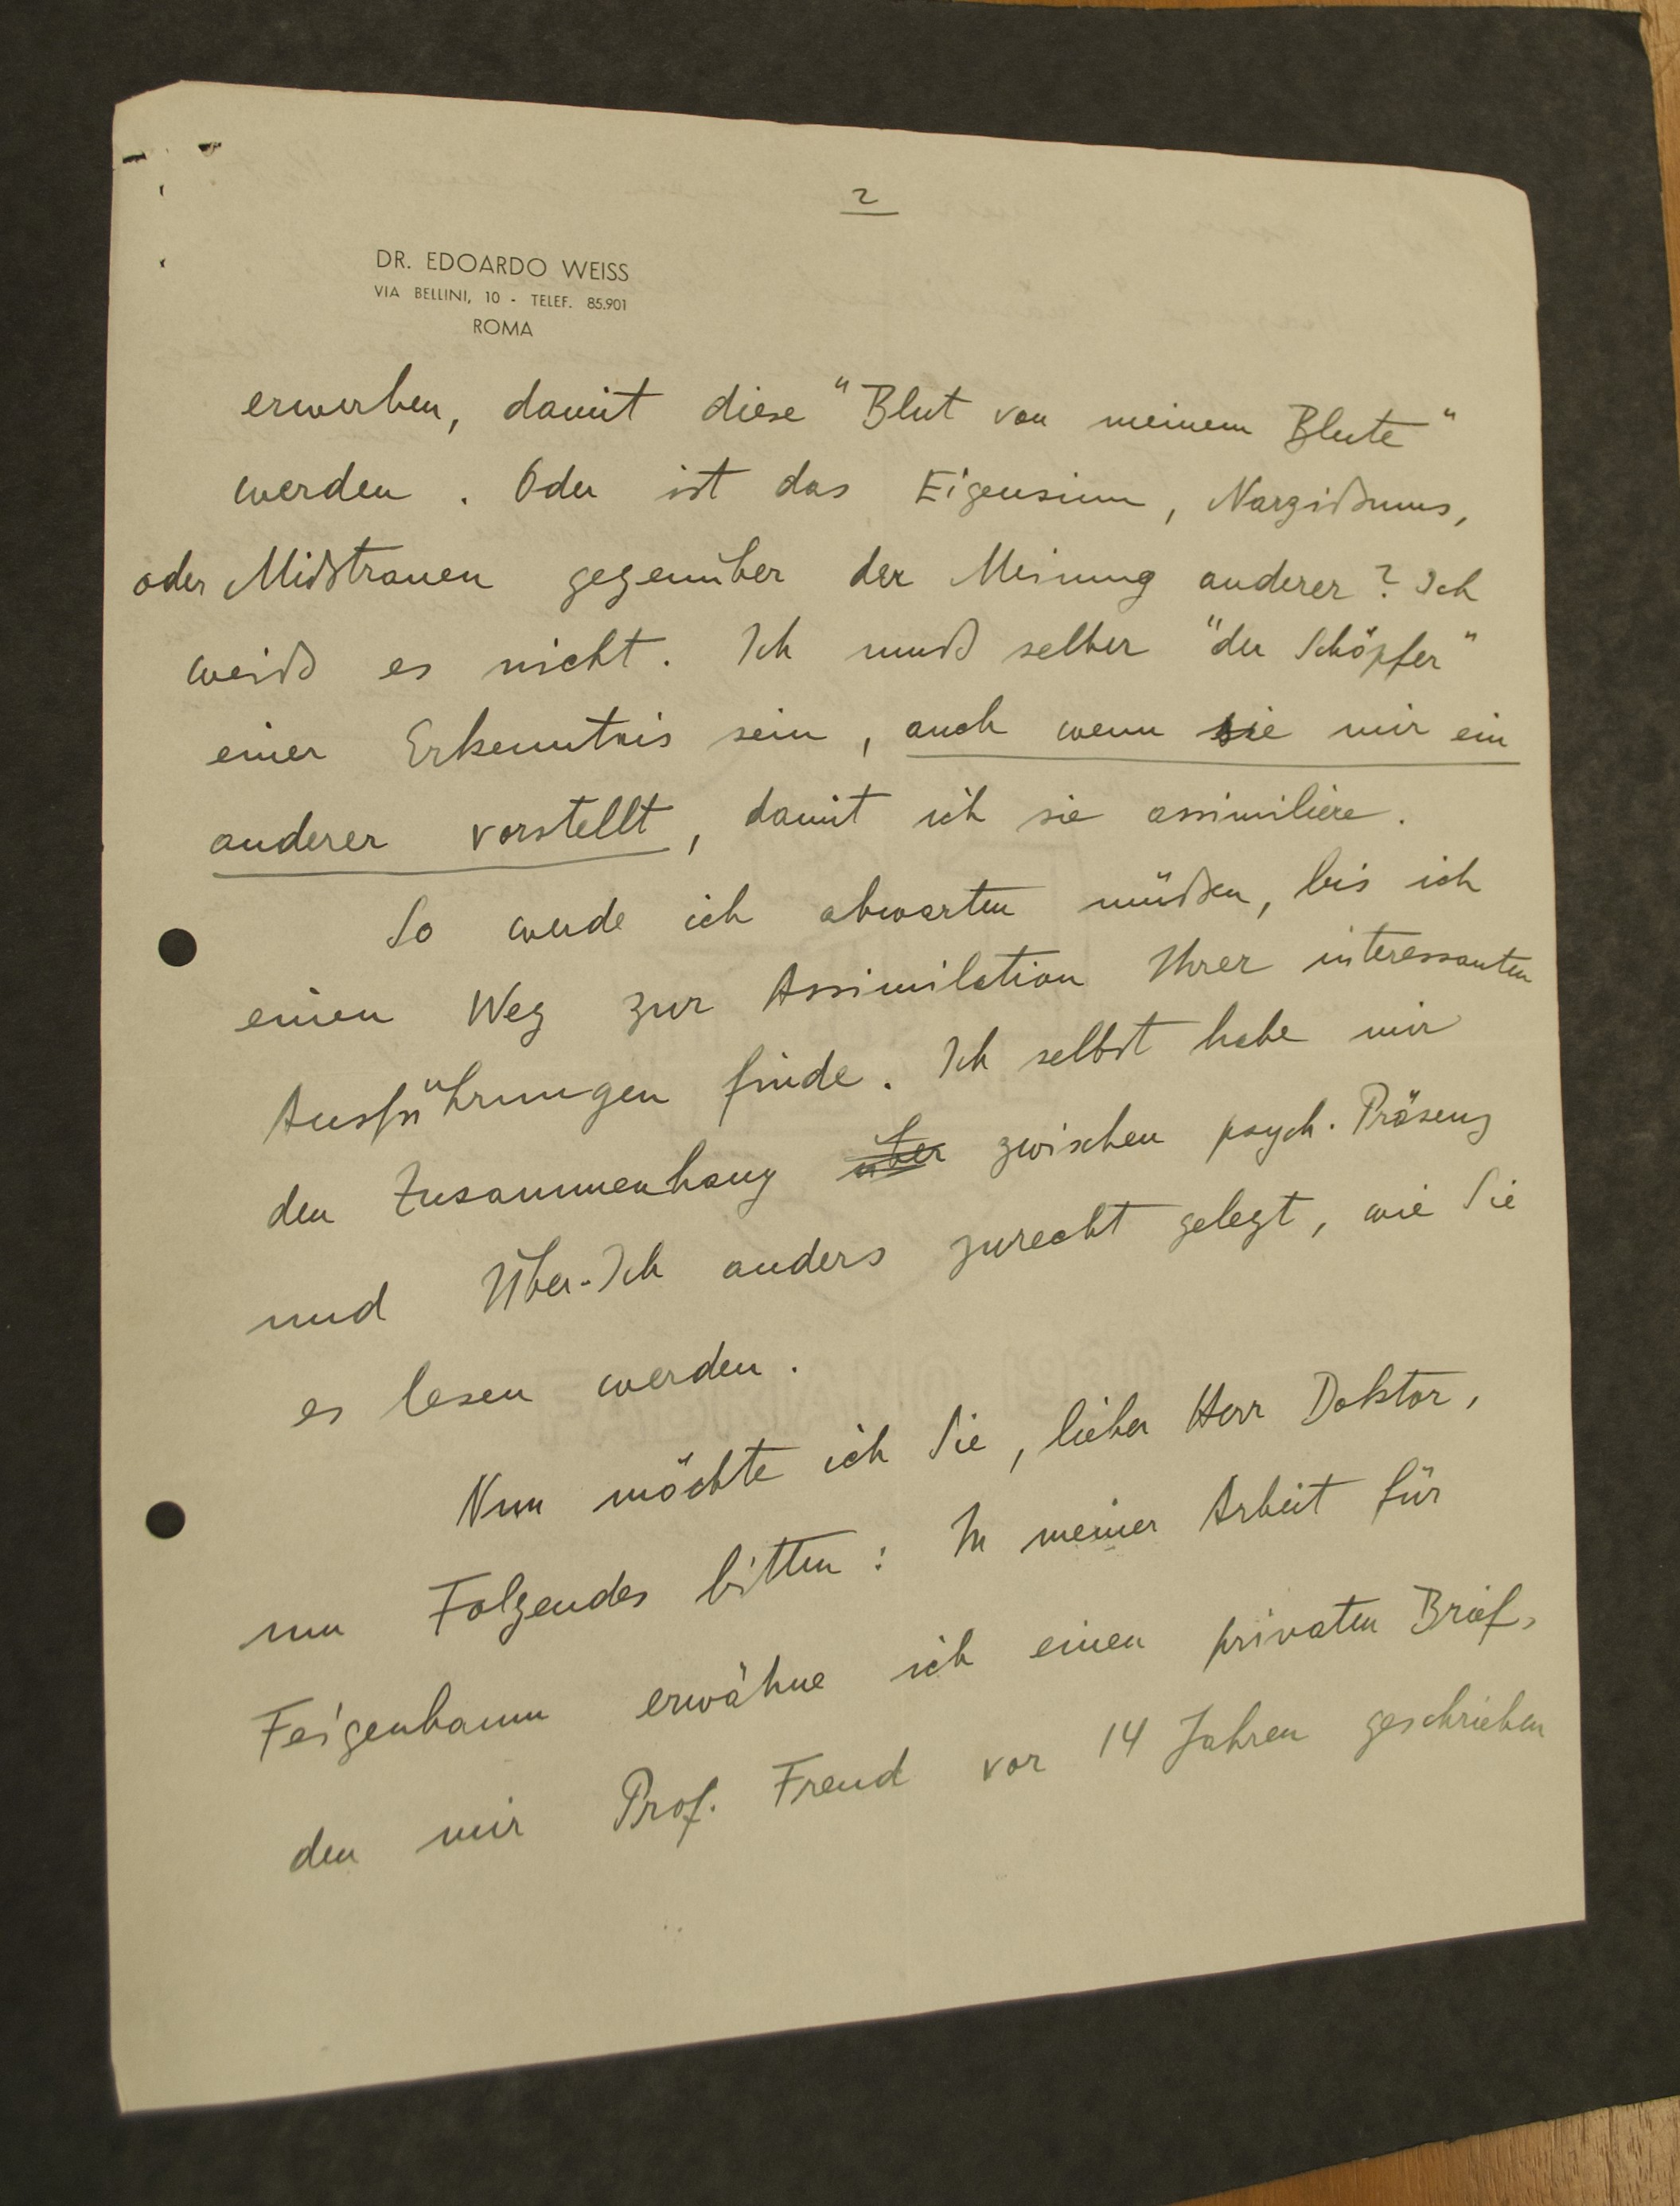 2
DR. EDOARDO WEISS
VIA BELLINI, 10 - TELEF. 85.901
ROMA
erwerben, damit diese "Blut von meinem Blute"
werden. Oder ist das Eigensinn, Narzißmus,
oder Mißtrauen gegenüber der Meinung anderer? Ich
weiß es nicht. Ich muß selber "der Schöpfer"
einer Erkenntnis sein, auch wenn sie mir ein
anderer vorstellt, damit ich sie assimiliere.
So werde ich abwarten müßen, bis ich
einen Weg zur Assimilation Ihrer interessanten
Ausführungen finde. Ich selbst habe mir
den Zusammenhang über zwischen psych. Präsenz
und Über-Ich anders zurecht gelegt, wie Sie
es lesen werden.
Nun möchte ich Sie, lieber Herr Doktor,
um Folgendes bitten: In meiner Arbeit für
Feigenbaum erwähne ich einen privaten Brief,
den mir Prof. Freud vor 14 Jahren geschrieben